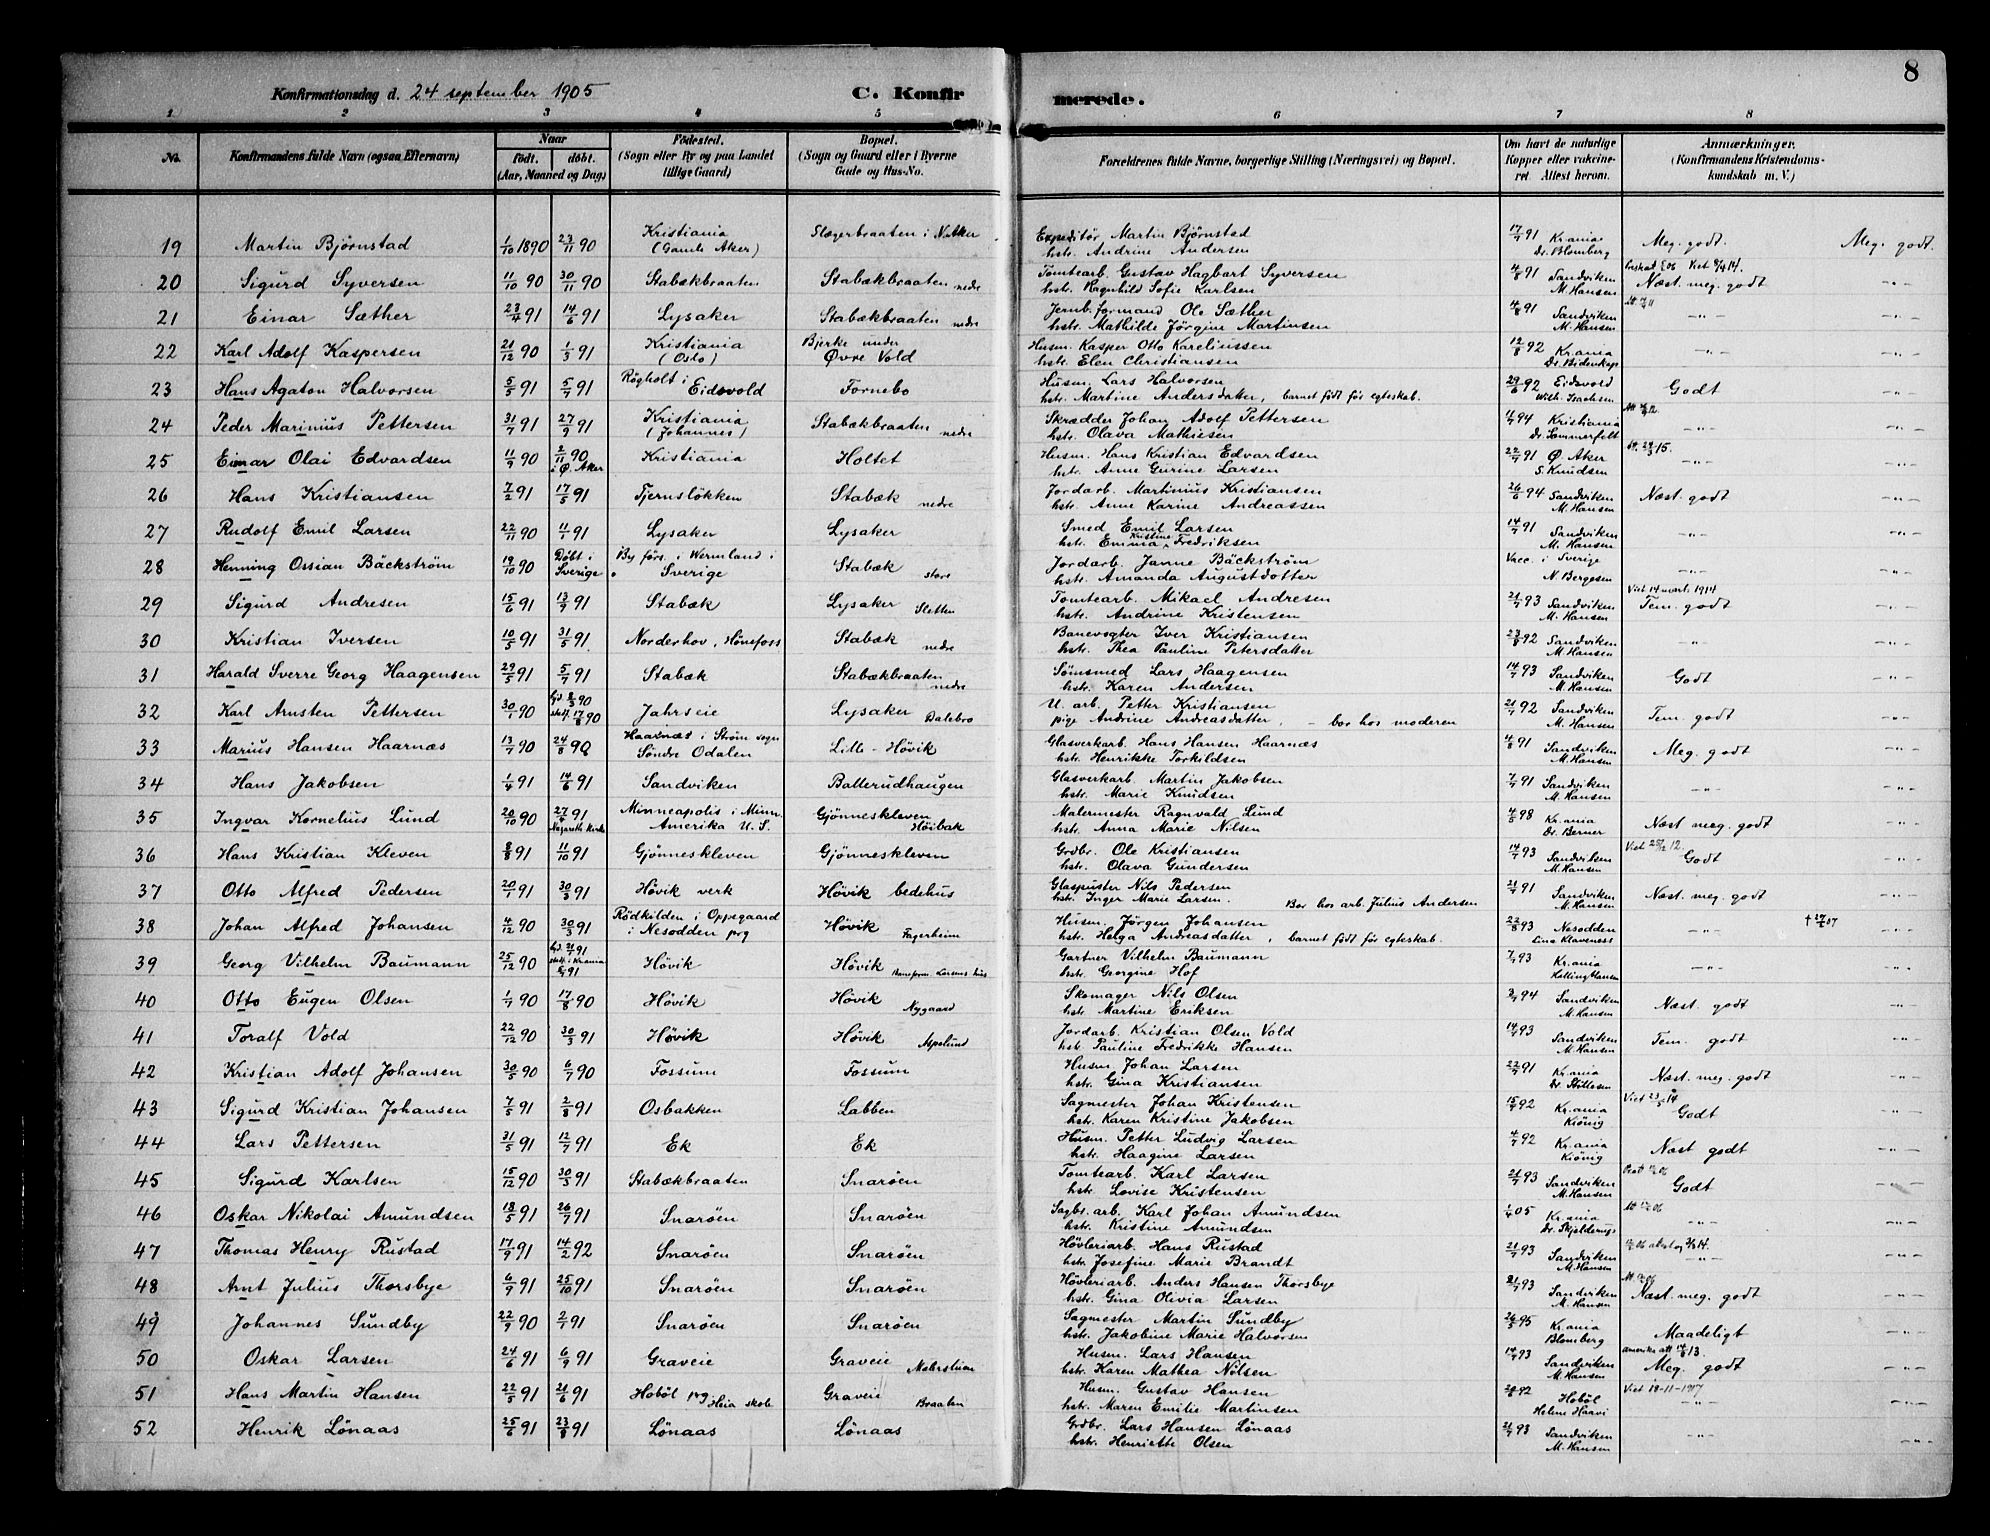 8
Konfirmationsdag d. 24 september 1905 C. Konfirmerede.
1 2 3 4 5 6 7 8
No. Konfirmandens fulde Navn (ogsaa Efternavn) Naar født. døbt. (Aar, Maaned og Dag) Fødested. (Sogn eller By og paa Landet tillige Gaard) Bopæl. (Sogn og Gaard eller i Byerne Gade og Hus-No. Forældrenes fulde Navne, borgerlige Stilling (Næringsvei) og Bopæl. Om havt de naturlige Kopper eller vakcineret. Attest herom. Anmærkninger. (Konfirmandens Kristendomskundskab m. V.)
19 Martin Bjørnstad 1/10 1890 23/11 90 Kristiania (Gamle Aker) i V. Aker Expeditör Martin Bjørnstad hstr. Andrine Andersen 17/7 91 Kr.ania Dr. Blomberg Meg. godt. Meg. godt.
20 Sigurd Syversen 11/10 90 30/11 90 Stabækbraaten Stabækbraaten nedre Tomtearb. Gustav Hagbart Syversen hstr. Ragnhild Sofie Karlsen 4/8 91 Sandviken M. Hansen Næst. meg. godt -"-
21 Einar Sæther 23/4 91 14/6 91 Lysaker Stabækbraaten nedre Jernb. formand Ole Sæther hstr. Mathilde Jörgine Martinsen 4/8 91 Sandviken M. Hansen -"- -"-
22 Karl Adolf Kaspersen 21/12 90 1/3 91 Kristiania (Oslo) Bjerke under Øvre Vold Husm. Kasper Otto Kareliussen hstr. Elen Christiansen 12/8 92 Kr.ania -"- -"-
23 Hans Agaton Halvorsen 5/5 91 5/7 91 Røgholt i Eidsvold Fornebo Husm. Lars Halvorsen hstr. Martine Andersdatter, barnet født før egteskab. 29/6 92 Eidsvold Godt -"-
24 Peder Marinius Pettersen 31/7 91 27/9 91 Kristiania (Johannes) Stabækbraaten nedre Skrædder Johan Adolf Pettersen hstr. Olava Mathiesen 94 Kristiania Dr. Sommerfelt -"- -"-
25 Einar Olai Edvardsen 11/9 90 2/11 90 i Ø. Aker Kristiania Holtet Husm. Hans Kristian Edvardsen hstr. Anne Gurine Larsen 22/7 91 Ø. Aker S. Knudsen -"- -"-
26 Hans Kristiansen 7/2 91 17/5 91 Tjernsløkken Stabæk nedre Jordarb. Martinius Kristiansen hstr. Anne Karine Andreassen 26/6 94 Sandviken M. Hansen Næst. godt -"-
27 Rudolf Emil Larsen 22/11 90 11/1 91 Lysaker Lysaker Smed Emil Larsen hstr. Emma Kristine Fredriksen 14/7 91 Sandviken M. Hansen -"- -"-
28 Henning Ossian Bäckström 19/10 90 Døbt i Sverige By förs. i Wermland i Sverige Stabæk store Jordarb. Janne Bäckström hstr. Amanda Augustdotter Vacc. i Sverige N. Bergesen -"- -"-
29 Sigurd Andresen 15/6 91 13/9 91 Stabæk Lysaker Sletten Tomtearb. Mikael Andresen hstr. Andrine Kristensen 21/7 93 Sandviken M. Hansen Viet 14 mars 1914 Tem. godt -"-
30 Kristian Iversen 10/5 91 31/5 91 Norderhov, Hønefoss Stabæk nedre Banevogter Iver Kristiansen hstr. Thea Pauline Petersdatter 23/8 92 Sandviken M. Hansen -"- -"-
31 Harald Sverre Georg Haagensen 29/5 91 5/7 91 Stabæk Stabækbraaten nedre Sømsmed Lars Haagensen hstr. Karen Andersen 14/7 93 Sandviken M. Hansen Godt -"-
32 Karl Arnsten Pettersen 30/1 90 90 stadf. 17/8 90 Jahrseie Lysaker Dalebro U. arb. Petter Kristiansen pige Andrine Andreasdatter, - bor hos moderen 21/7 92 Sandviken M. Hansen Tem. godt -"-
33 Marius Hansen Haarnæs 13/7 90 24/8 90 Haarnæs i Strøm sogn Söndre Odalen Lille-Høvik Glasverkarb. Hans Hansen Haarnæs hstr. Henrikke Torkildsen 4/8 91 Sandviken M. Hansen Meg. godt -"-
34 Hans Jakobsen 1/4 91 14/6 91 Sandviken Ballerudhaugen Glasverkarb. Martin Jakobsen hstr. Marie Knudsen 7/7 91 Sandviken M. Hansen -"- -"-
35 Ingvar Kornelius Lund 20/10 90 91 Nazareth Kirke Minneapolis i Minn. Amerika U. S. Gjønneskleven Höibak Malermester Ragnvald Lund hstr. Anna Marie Nilsen 4/5 98 Kr.ania Dr. Berner Næst meg. godt -"-
36 Hans Kristian Kleven 8/8 91 11/10 91 Gjønneskleven Gjønneskleven Grdbr. Ole Kristiansen hstr. Olava Gundersen 14/7 93 Sandviken M. Hansen Viet 28/12 12. Godt -"-
37 Otto Alfred Pedersen 20/1 91 30/3 91 Høvik verk Høvik bedehus Glaspuster Nils Pedersen hstr. Inger Marie Larsen. Bor hos arb. Julius Andersen 21/7 91 Sandviken M. Hansen Næst. meg. godt -"-
38 Johan Alfred Johansen 4/12 90 30/3 91 Rödkilden i Oppegaard i Nesodden prg Høvik Fagerheim Husm. Jørgen Johansen hstr. Helga Andreasdatter, barnet født før egteskab. 22/8 93 Nesodden Lina Klaveness -"-
39 Georg Vilhelm Baumann 25/12 90 91 stadf. i Kr.ania 91 Høvik Høvik Baneform. Larsens hus Gartner Vilhelm Baumann hstr. Georgine Hof 7/7 93 Kr.ania -"- -"-
40 Otto Eugen Olsen 1/7 90 17/8 90 Høvik Høvik Nygaard Skomager Nils Olsen hstr. Martine Eriksen 3/7 94 Sandviken M. Hansen Næst. godt -"-
41 Toralf Vold 22/12 90 30/3 91 Høvik Høvik Aspelund Jordarb. Kristian Olsen Vold hstr. Pauline Fredrikke Hansen 14/7 93 Sandviken M. Hansen Tem. godt -"-
42 Kristian Adolf Johansen 30/5 90 6/7 90 Fossum Fossum Husm. Johan Larsen hstr. Gina Kristiansen 22/7 91 Kr.ania Næst. meg. godt -"-
43 Sigurd Kristian Johansen 7/5 91 2/8 91 Osbakken Labben Sagmester Johan Kristensen hstr. Karen Kristine Jakobsen 15/9 92 Kr.ania Kiönig Viet 23/5 14 Godt -"-
44 Lars Pettersen 31/5 91 12/7 91 Ek Ek Husm. Petter Ludvig Larsen hstr. Haagine Larsen 4/7 92 Kr.ania Kiönig Næst godt -"-
45 Sigurd Karlsen 15/12 90 30/3 91 Stabækbraaten Snarøen Tomtearb. Karl Larsen hstr. Lovise Kristensen 21/7 93 Sandviken M. Hansen Godt -"-
46 Oskar Nikolai Amundsen 18/5 91 26/7 91 Snarøen Snarøen Sagbr. arb. Karl Johan Amundsen hstr. Kristine Amundsen 1/4 05 Kr.ania -"- -"-
47 Thomas Henry Rustad 17/9 91 14/2 92 Snarøen Snarøen Høvleriarb. Hans Rustad hstr. Josefine Marie Brandt 21/7 93 Sandviken M. Hansen -"- -"-
48 Arnt Julius Thorsbye 6/9 91 25/10 91 Snarøen Snarøen Høvleriarb. Anders Hansen Thorsbye hstr. Gina Olivia Larsen 21/7 93 Sandviken M. Hansen Næst. meg. godt -"-
49 Johannes Sundby 22/9 90 2/1 91 Snarøen Snarøen Sagmester Martin Sundby hstr. Jakobine Marie Halvorsen 26/5 95 Kr.ania Blomberg Maadeligt -"-
50 Oskar Larsen 24/6 91 6/9 91 Graveie Graveie Husm. Lars Hansen hstr. Karen Mathea Nilsen 14/7 93 Sandviken M. Hansen Meg. godt -"-
51 Hans Martin Hansen 22/5 91 21/6 91 Hobøl prg Heia skole Graveie Braaten Husm. Gustav Hansen hstr. Maren Emilie Martinsen 92 Hobøl Helene Haavi Viet 18-11-1917 -"- -"-
52 Henrik Lønaas 25/6 91 23/8 91 Lønaas Lønaas Grdbr. Lars Hansen Lønaas hstr. Henriette Olsen 21/7 93 Sandviken M. Hansen -"- -"-